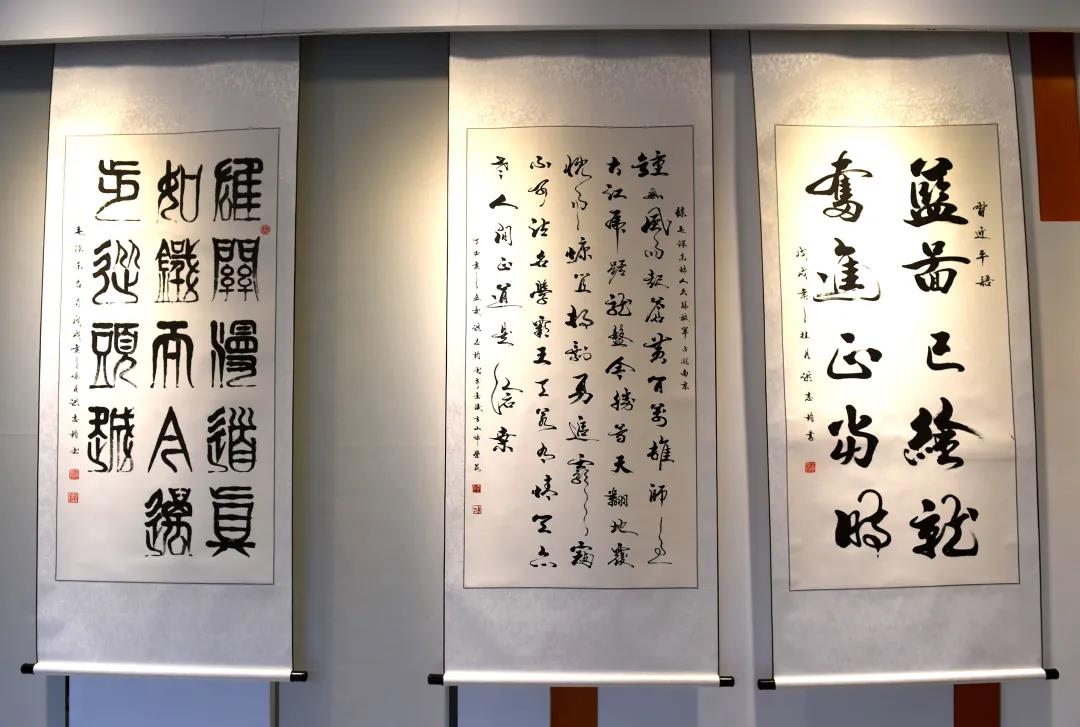 雄關漫道真
如鐵而今邁
步從頭越
録毛澤东詩人民解放軍占領南京
鐘山風雨起蒼黄百萬雄師過
大江虎踞龍盤今勝昔天翻地覆
慨而慷宜将剩勇追窮寇
不可沽名學霸王天若有情天亦
老人間正道是滄桑
習近平語
藍圖已繪就
奮進正當時
戊戌年之桂月洪志